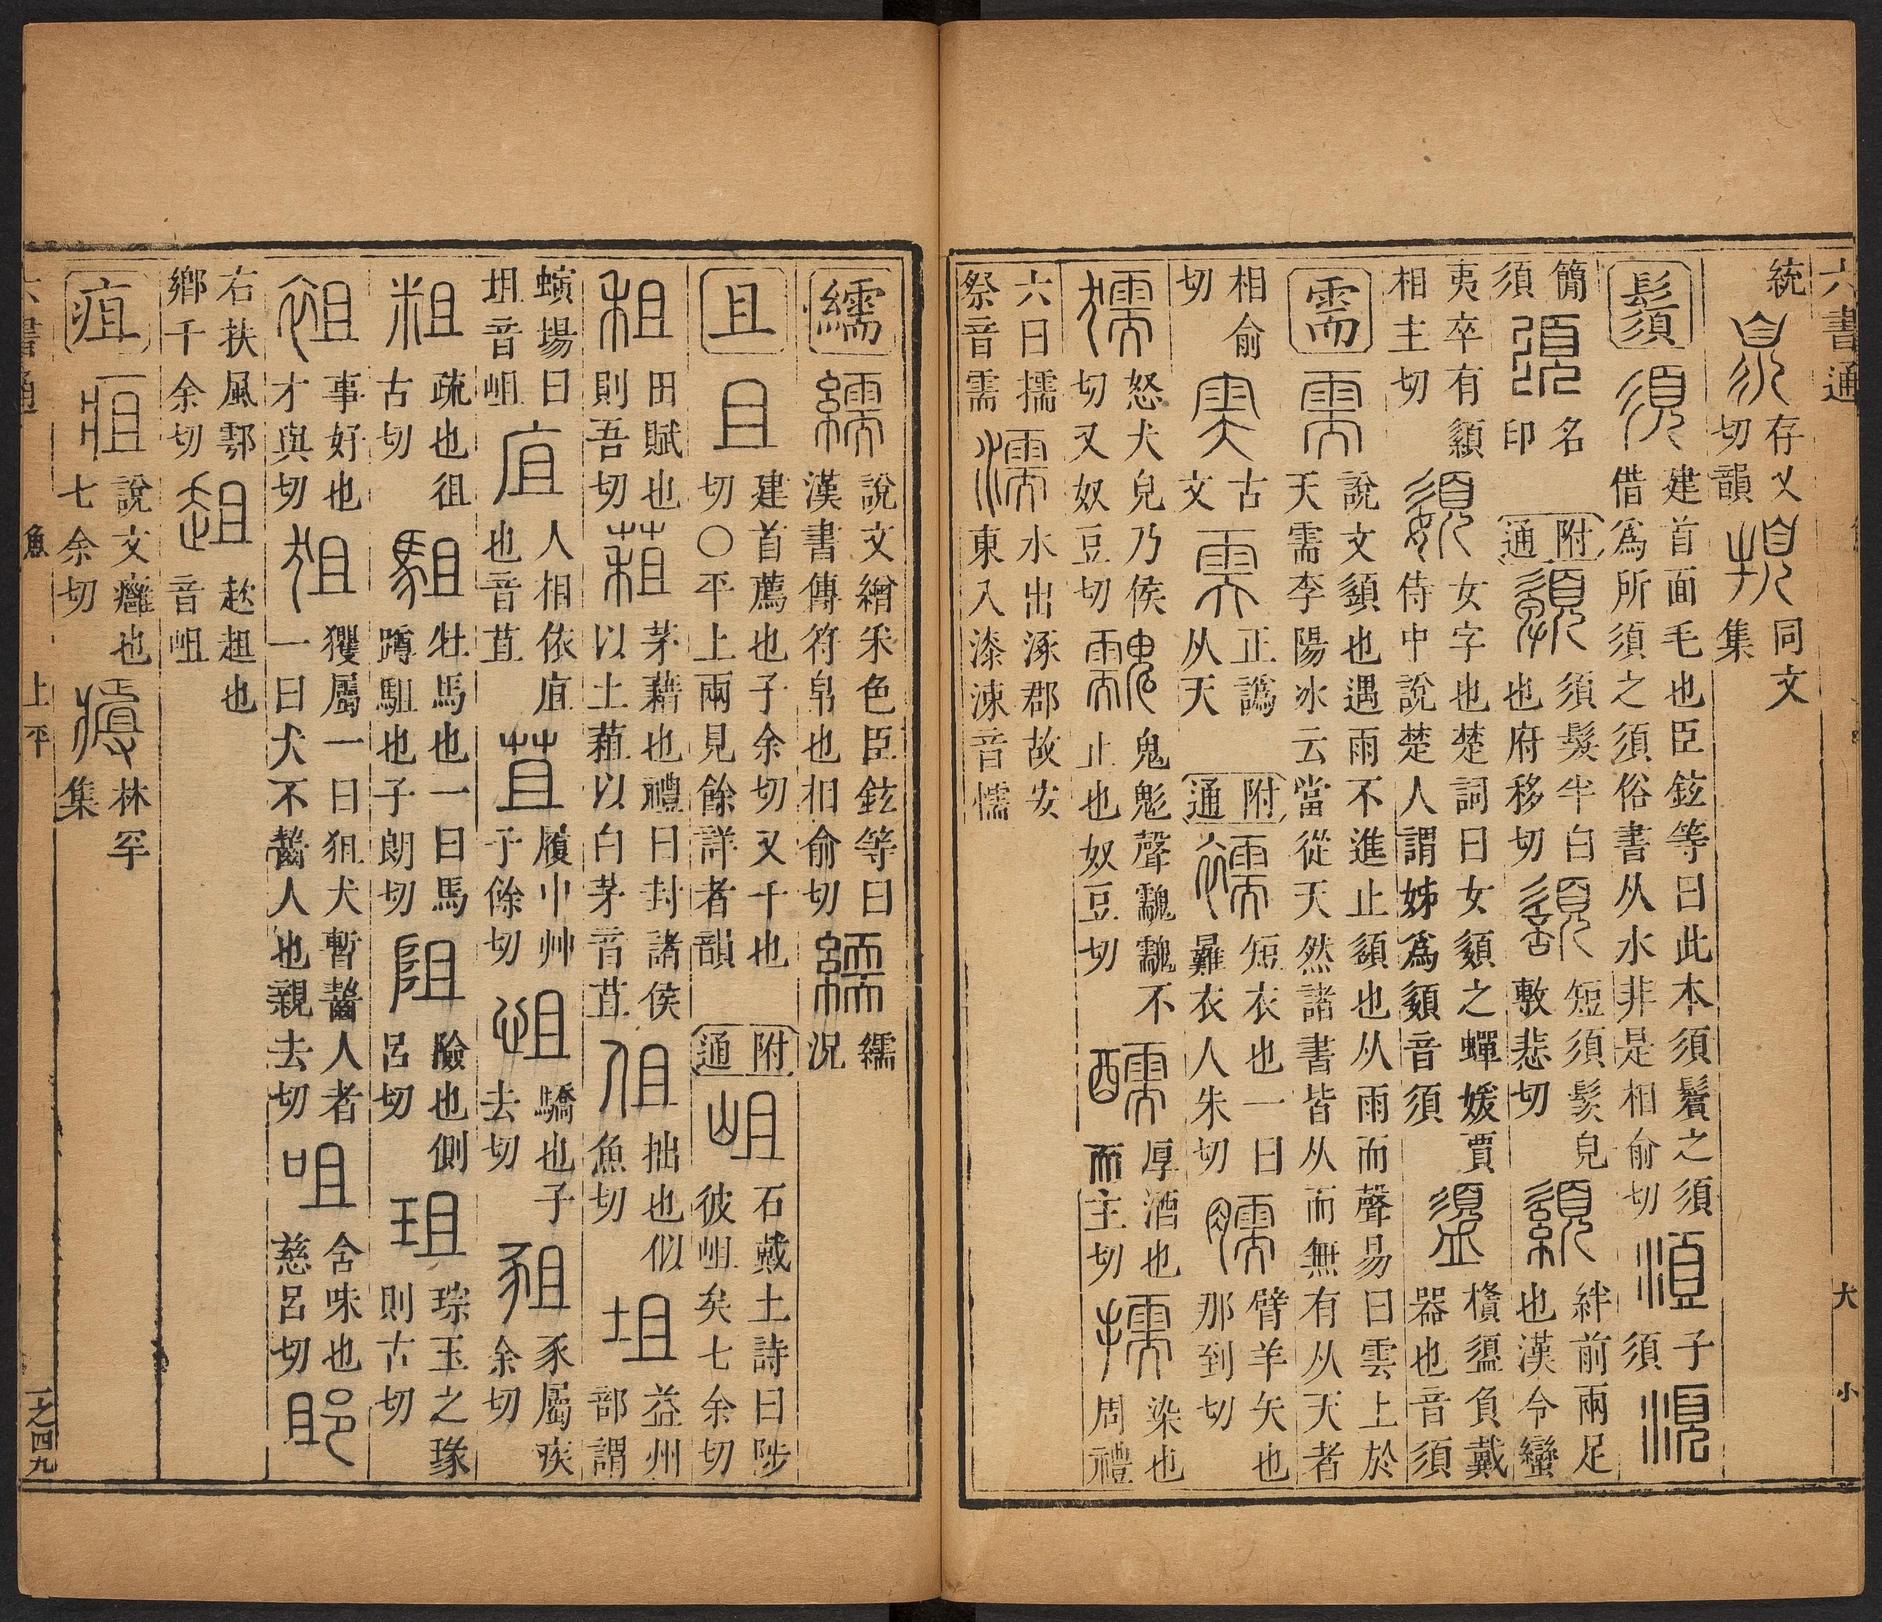 六書通
統
存乂切韻
同文集
鬚
建首面毛也臣鉉等曰此本須鬢之須
借爲所須之須俗書从水非是相俞切
子須
簡
名印
須
附通
須髮半白也府移切
短須髮皃敷悲切
絆前兩足也漢令蠻
夷卒有顉
相主切
女字也楚詞曰女嬃之蟬媛賈
侍中說楚人謂姊爲嬃音須
樻盨負戴器也音須
需
說文䇓也遇雨不進止䇓也从雨而聲易曰雲上於
天需李陽冰云當從天然諸書皆从而無有从天者
相俞切
古文
正譌从天
附通
短衣也一曰㬮衣人朱切
臂羊矢也那到切
怒犬皃乃侯切又奴豆切
鬼鬽聲䨲䨲不止也奴豆切
厚酒也而主切
染也周禮
六曰擩祭音需
水出涿郡故安東入漆涑音懦
繻
說文繒采色臣鉉等曰漢書傳符帛也相俞切
繻況
且
建首薦也子余切又千也切〇平上兩見餘詳者韻
附通
石戴土詩曰陟彼岨矣七余切
田賦也則吾切
茅藉也禮曰封諸侯以土蒩以白茅音苴
拙也似魚切
益州部謂
螾場曰坥音岨
人相依㡹也音苴
履中艸子餘切
驕也子去切
豕屬疾余切
疏也徂古切
牡馬也一曰馬蹲駔也子朗切
險也側呂切
琮玉之瑑則古切
事好也才與切
玃屬一曰狙犬暫齧人者一曰犬不齧人也親去切
含味也慈呂切
右扶風鄠鄉千余切
趑趄也音岨
疽
說文癰也七余切
林罕集
六書通
魚
上平
一之四九